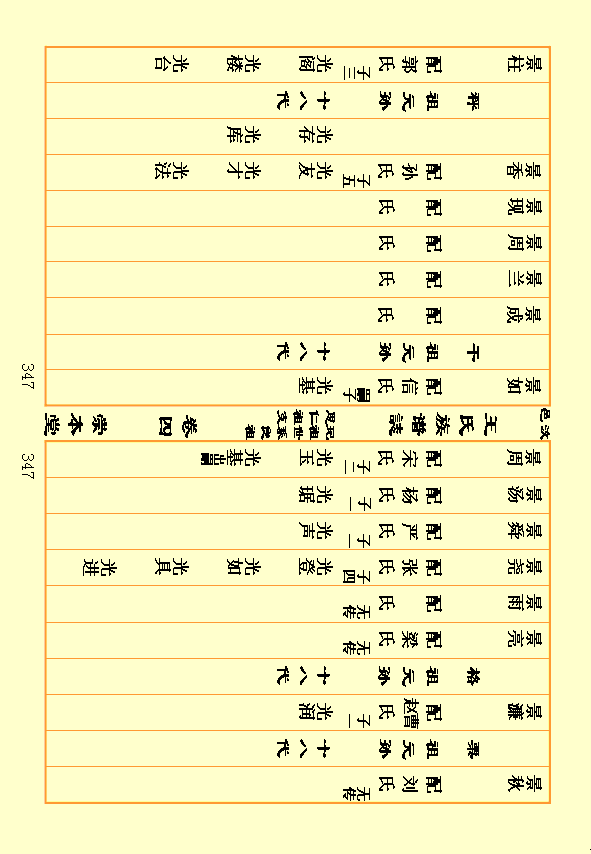 景秋 配刘氏 无传
票祖元孙十八代
景濂 配赵曹氏 子一 光润
格祖元孙十八代
景亮 配梁氏 无传
景雨 配 氏 无传
景尧 配张氏 子四 光登 光如 光具 光进
景舜 配严氏 子一 光声
景汤 配杨氏 子一 光琚
景周 配宋氏 子二 光玉 光基出嗣
347
汶邑 王氏族谱誌 卷四 崇本堂
347
景如 配信氏 嗣子 光基
于祖元孙十八代
景成 配 氏
景兰 配 氏
景周 配 氏
景现 配 氏
景香 配孙氏 子五 光友 光才 光法
光存 光库
秤祖元孙十八代
景柱 配郭氏 子三 光阁 光楼 光台